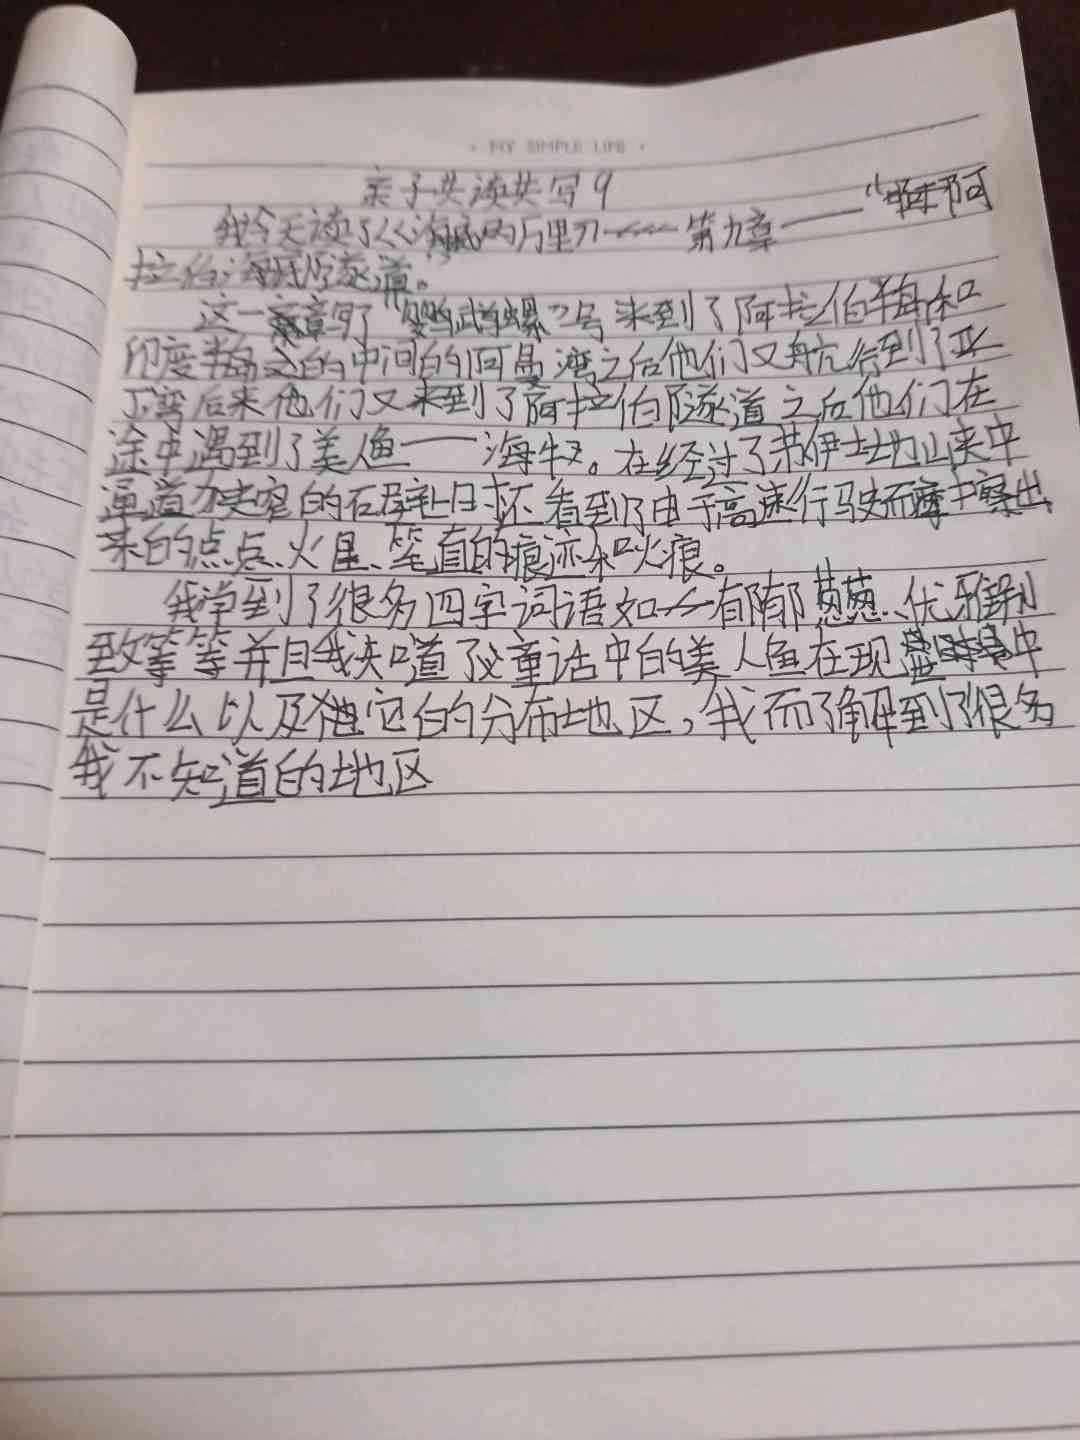 · MY SIMPLE LIFE ·
亲子共读共写9
我今天读了《海底两万里》——第九章——“阿
拉伯海底隧道。
这一章写了“鹦鹉螺”号来到了阿拉伯半岛和
印度半岛之的中间的阿曼湾之后他们又航行到了亚
丁湾后来他们又来到了阿拉伯隧道之后他们在
途中遇到了美人鱼——海牛。在经过了苏伊士地山夹中
通道力夹窄的石壁上时还看到了由于高速行驶而摩擦出
来的点点火星、笔直的痕迹和火痕。
我学到了很多四字词语如——有郁郁葱葱、优雅别
致等等并且我知道了童话中的美人鱼在现中
是什么以及它的分布地区,我而了解到了很多
我不知道的地区